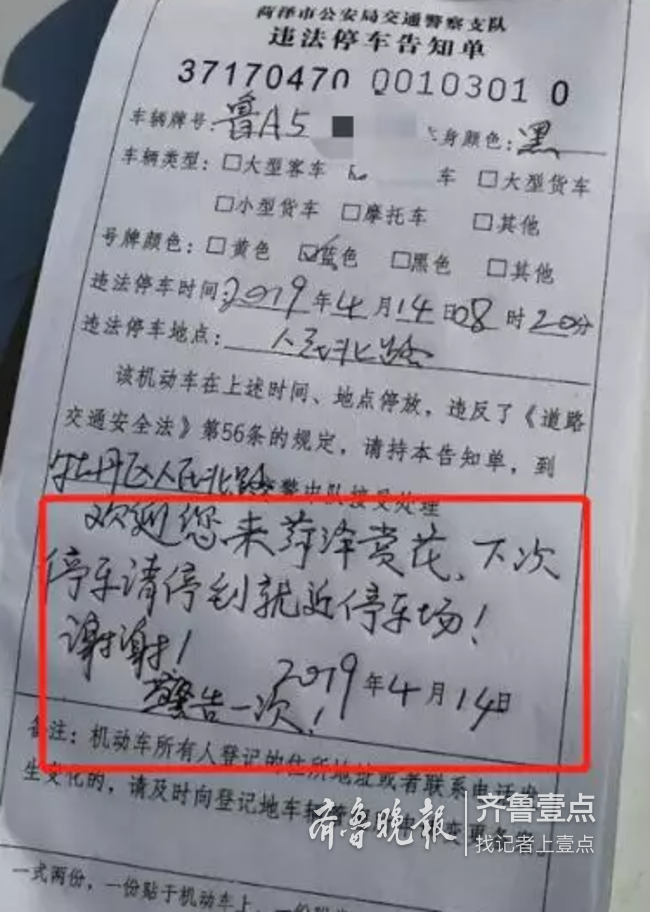 菏泽市公安局交通警察支队
违法停车告知单
37170470 0010301 0
车辆牌号:鲁A5 身颜色:黑
车辆类型:□大型客车 车 □大型货车
□小型货车 □摩托车 □其他
号牌颜色:□黄色 ☑蓝色 □黑色 □其他
违法停车时间:2019年4月14日08时20分
违法停车地点:人民北路
该机动车在上述时间、地点停放,违反了《道路
交通安全法》第56条的规定,请持本告知单,到
牡丹区人民北路交警中队接受处理
欢迎您来菏泽赏花、下次
停车请停到就近停车场!
谢谢!
2019年4月14日
警告一次!
备注:机动车所有人登记的住所地址或者联系电话发
生变化的,请及时向登记地车辆管
齐鲁晚报 齐鲁壹点
找记者上壹点
一式两份,一份贴于机动车上,一份